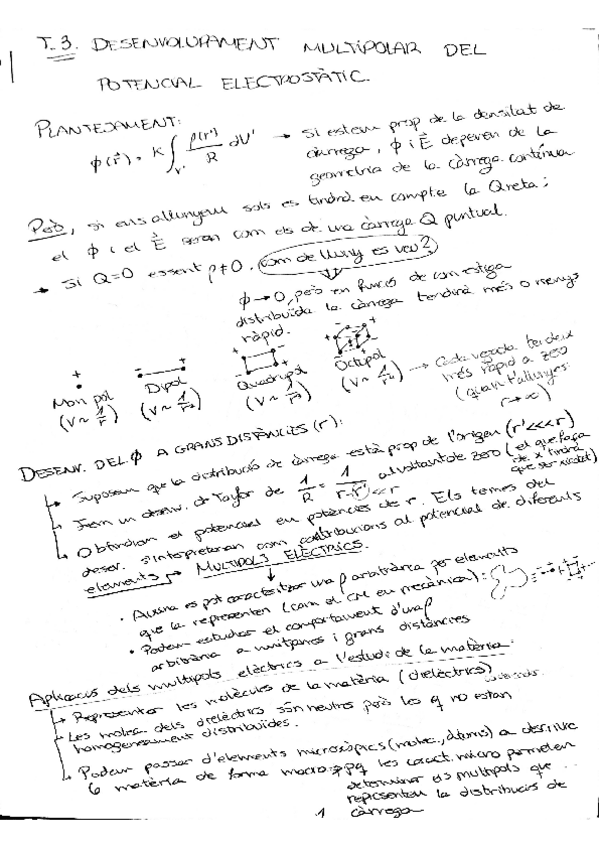 T.3. DESENVOLUPAMENT MULTIPOLAR DEL
POTENCIAL ELECTROSTÀTIC.
PLANTEJAMENT:
φ(r⃗) = K ∫V' ρ(r')/R dV' → Si estem prop de la densitat de
càrrega, φ i E⃗ depenen de la
geometria de la càrrega contínua
Però, si ens allunyem sols es tindrà en compte la Q neta;
el φ i el E⃗ seran com els de una càrrega Q puntual.
→ Si Q=0 essent ρ≠0. ¿com de lluny es veu?
φ→0, però en funció de com estiga
distribuïda la càrrega tendirà més o menys
ràpid.
Monopol Dipol Quadrupol Octipol
(V~1/r) (V~1/r²) (V~1/r³) (V~1/r⁴) → Cada vegada tendeix
més ràpid a zero
(quan t'allunyes
r→∞)
DESENV. DEL φ A GRANS DISTÀNCIES (r):
Suposem que la distribució de càrrega està prop de l'origen (r'<<<r)
Fem un desenv. de Taylor de 1/R = 1/r-r' al voltant de zero (el que faça
de x tindrà
que ser xicotet)
Obtindrem el potencial en potències de r. Els termes del
desen. s'interpretaran com contribucions al potencial de diferents
elements → MULTIPOLS ELÈCTRICS.
• Així es pot caracteritzar una ρ arbitrària per elements
que la representen (com el CM en mecànica):
• Podem estudiar el comportament d'una ρ
arbitrària a mitjanes i grans distàncies
Aplicació dels multipols elèctrics a l'estudi de la matèria:
Representar les molècules de la matèria (dielèctrics)
Les molec. dels dielèctrics són neutres però les q no estan
homogèneament distribuïdes.
Podem passar d'elements microscòpics (molec., àtoms) a descriure
la matèria de forma macro. pq les caract. micro permeten
determinar els multipols que
representen la distribució de
càrrega
1